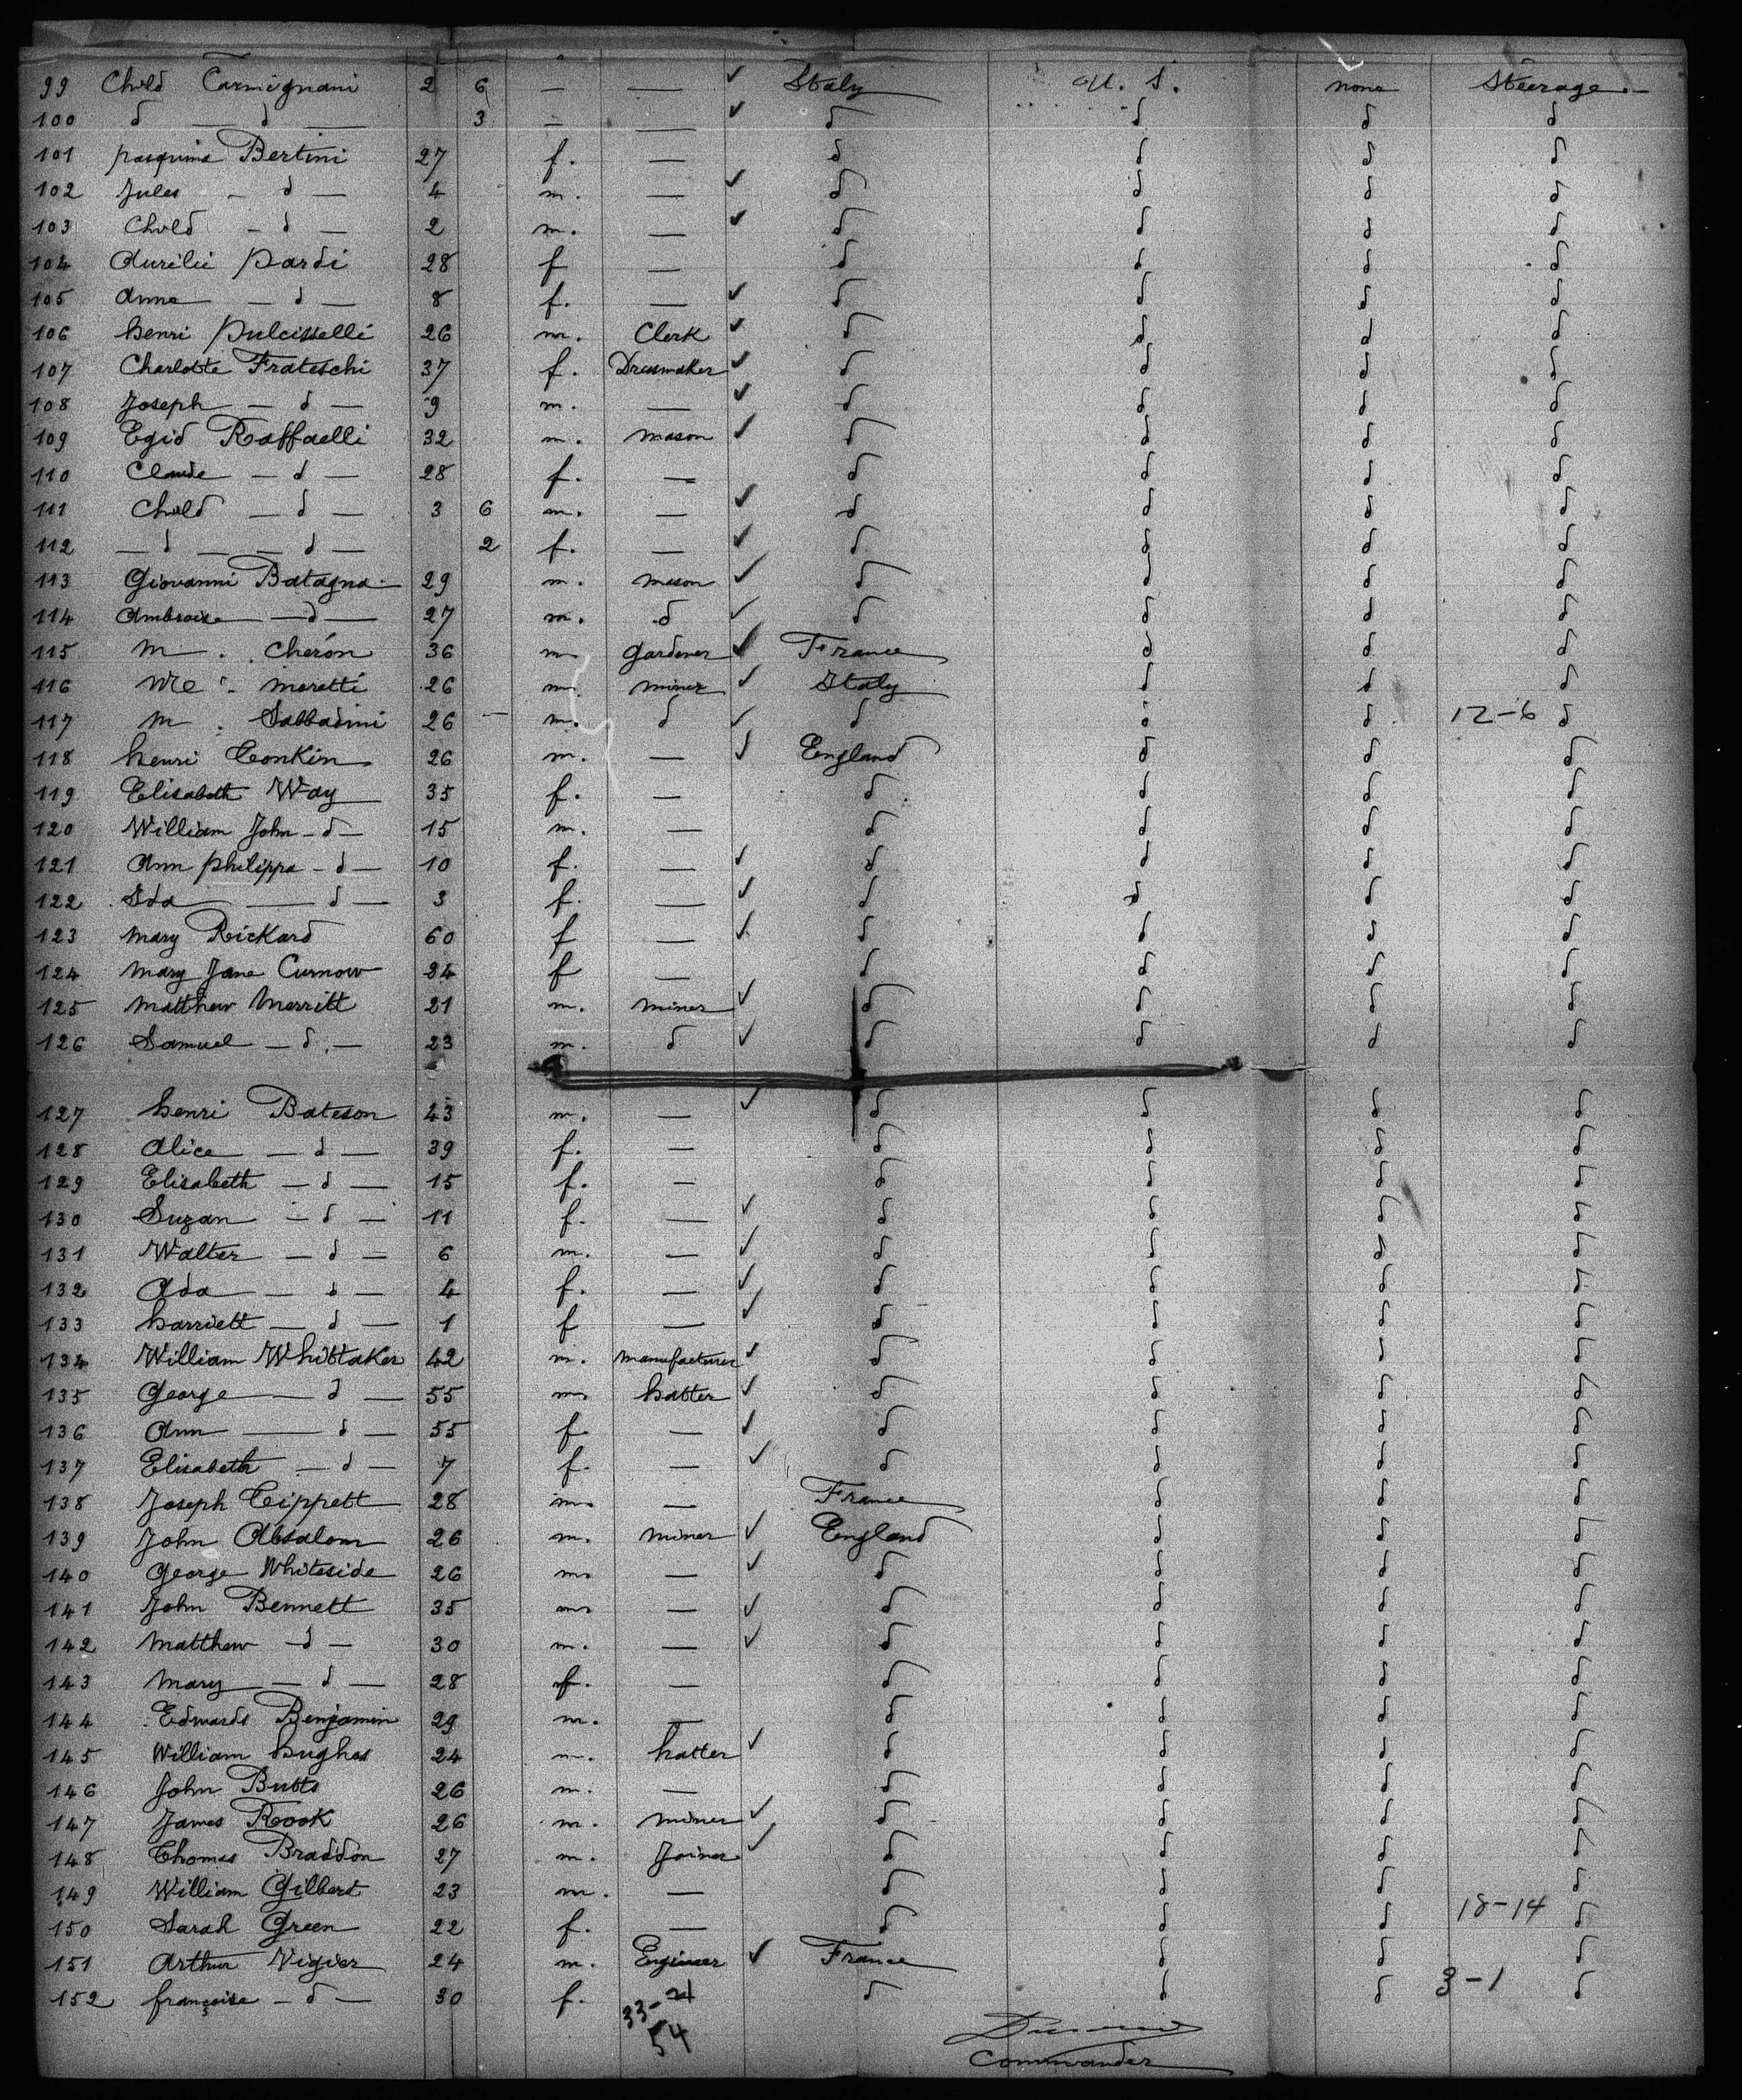 99 Child Carmignani 2 6 — — ✓ Italy U. S. none Steerage
100 d — d — 3 — — ✓ d d d d
101 pasquina Bertini 27 f. — d d d d
102 Jules — d — 4 m. — ✓ d d d d
103 Child — d — 2 m. — ✓ d d d d
104 Aurélie pardi 28 f — d d d d
105 Anna — d — 8 f. — ✓ d d d d
106 henri pulcisselli 26 m. Clerk ✓ d d d d
107 Charlotte Frateschi 37 f. Dressmaker ✓ d d d d
108 Joseph — d — 9 m. — ✓ d d d d
109 Egid Raffaelli 32 m. mason ✓ d d d d
110 Claude — d — 28 f. — d d d d
111 Child — d — 3 6 m. — ✓ d d d d
112 — d — — d — 2 f. — ✓ d d d d
113 Giovanni Batagna 29 m. mason ✓ d d d d
114 Ambroise — d — 27 m. d ✓ d d d d
115 M. Cherón 36 m. gardener ✓ France d d d
116 moretti 26 m. miner ✓ Italy d d d
117 M. Sabbadini 26 — m. d ✓ d d d 12-6 d
118 henri Conkin 26 m. — ✓ England d d d
119 Elisabeth Way 35 f. — d d d d
120 William John — d — 15 m. — d d d d
121 Ann philippa — d — 10 f. — ✓ d d d d
122 Ida — d — 3 f. — ✓ d d d d
123 Mary Rickard 60 f — ✓ d d d d
124 Mary Jane Curnow 24 f — d d d d
125 Matthew Merritt 21 m. miner ✓ d d d d
126 Samuel — d — 23 m. d ✓ d d d d
127 henri Bateson 43 m. — ✓ d d d d
128 Alice — d — 39 f. — d d d d
129 Elisabeth — d — 15 f. — d d d d
130 Suzan — d — 11 f. — ✓ d d d d
131 Walter — d — 6 m. — ✓ d d d d
132 Ada — d — 4 f. — ✓ d d d d
133 harriett — d — 1 f — ✓ d d d d
134 William Whittaker 42 m. manufacturer ✓ d d d d
135 George — d — 55 m. hatter ✓ d d d d
136 Ann — d — 55 f. — ✓ d d d d
137 Elisabeth — d — 7 f. — ✓ d d d d
138 Joseph Tippett 28 m. — France d d d
139 John Absalom 26 m. miner ✓ England d d d
140 George Whiteside 26 m. — ✓ d d d d
141 John Bennett 35 m. — ✓ d d d d
142 Matthew — d — 30 m. — ✓ d d d d
143 Mary — d — 28 f. — d d d d
144 Edwards Benjamin 29 m. — d d d d
145 William hughes 24 m. hatter ✓ d d d d
146 John Butts 26 m. — d d d d
147 James Rook 26 m. miner ✓ d d d d
148 Thomas Braddon 27 m. Joiner ✓ d d d d
149 William Gilbert 23 m. — d d d d
150 Sarah Green 22 f. — d d d 18-14 d
151 Arthur Vigier 24 m. Engineer ✓ France d d d
152 françoise — d — 30 f. d d d 3-1 d
33-21
54
Commander